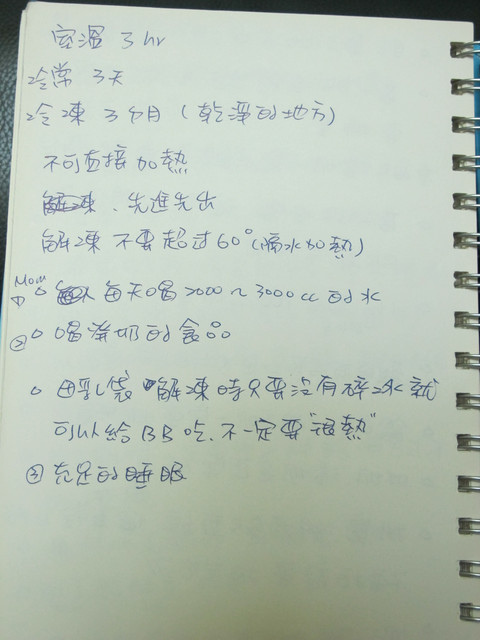 室溫 3 hr
冷常 3天
冷凍 3个月 (乾淨的地方)
不可直接加熱
解凍、先進先出
解凍 不要超过60°(隔水加熱)
Mom ① 每天喝2000~3000cc的水
② 喝滯奶的食品
母乳袋 解凍時只要沒有碎冰就
可以給BB吃、不一定要"很熱"
③ 充足的睡眠